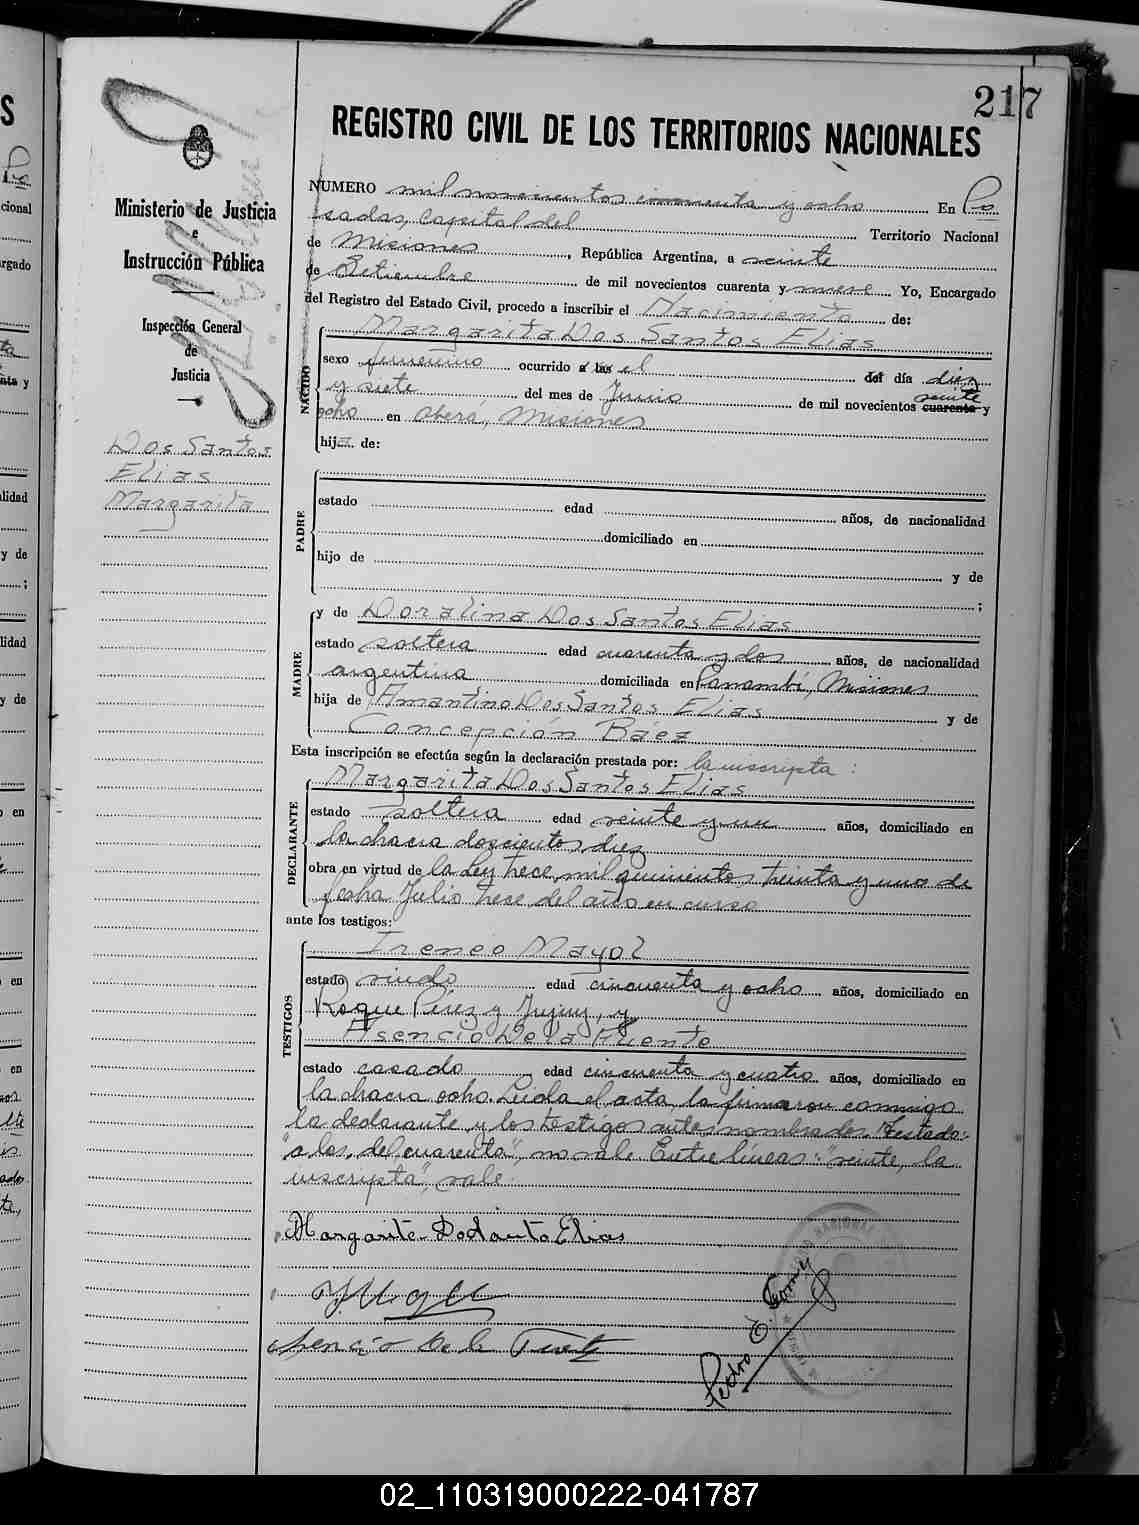 217
REGISTRO CIVIL DE LOS TERRITORIOS NACIONALES
Ministerio de Justicia
e
Instrucción Pública
Inspección General
de
Justicia
Dos Santos
Elias
Margarita
NUMERO mil novecientos cincuenta y ocho En Po
sadas, capital del Territorio Nacional
de Misiones, República Argentina, a veinte
de Setiembre de mil novecientos cuarenta y nueve. Yo, Encargado
del Registro del Estado Civil, procedo a inscribir el Nacimiento de:
Margarita Dos Santos Elias
NACIDO
sexo femenino ocurrido a las el del día diez
y siete del mes de Junio de mil novecientos cuarenta veinte y
ocho en Oberá, Misiones
hija de:
PADRE
estado edad años, de nacionalidad
domiciliado en
hijo de y de
;
MADRE
y de Doralina Dos Santos Elias
estado soltera edad cuarenta y dos años, de nacionalidad
argentina domiciliada en Panambí, Misiones
hija de Amantino Dos Santos Elias y de
Concepción Báez
Esta inscripción se efectúa según la declaración prestada por: la inscripta:
DECLARANTE
Margarita Dos Santos Elias
estado soltera edad veinte y un años, domiciliado en
la chacra doscientos diez
obra en virtud de la Ley trece mil quinientos treinta y uno de
fecha Julio trece del año en curso
ante los testigos:
TESTIGOS
Ireneo Mayol
estado viudo edad cincuenta y ocho años, domiciliado en
Roque Pérez y Jujuy, y
Asencio De la Fuente
estado casado edad cincuenta y cuatro años, domiciliado en
la chacra ocho. Leida el acta, la firmaron conmigo
la declarante y los testigos antes nombrados. Testado:
"a las, del, cuarenta", no vale. Entre líneas: "veinte, la
inscripta", vale.
Margarita Dosantos Elias
Asencio De la Fuente
Pedro O.
02_110319000222-041787